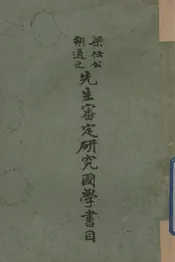 梁任公
胡適之
先生審定研究國學書目